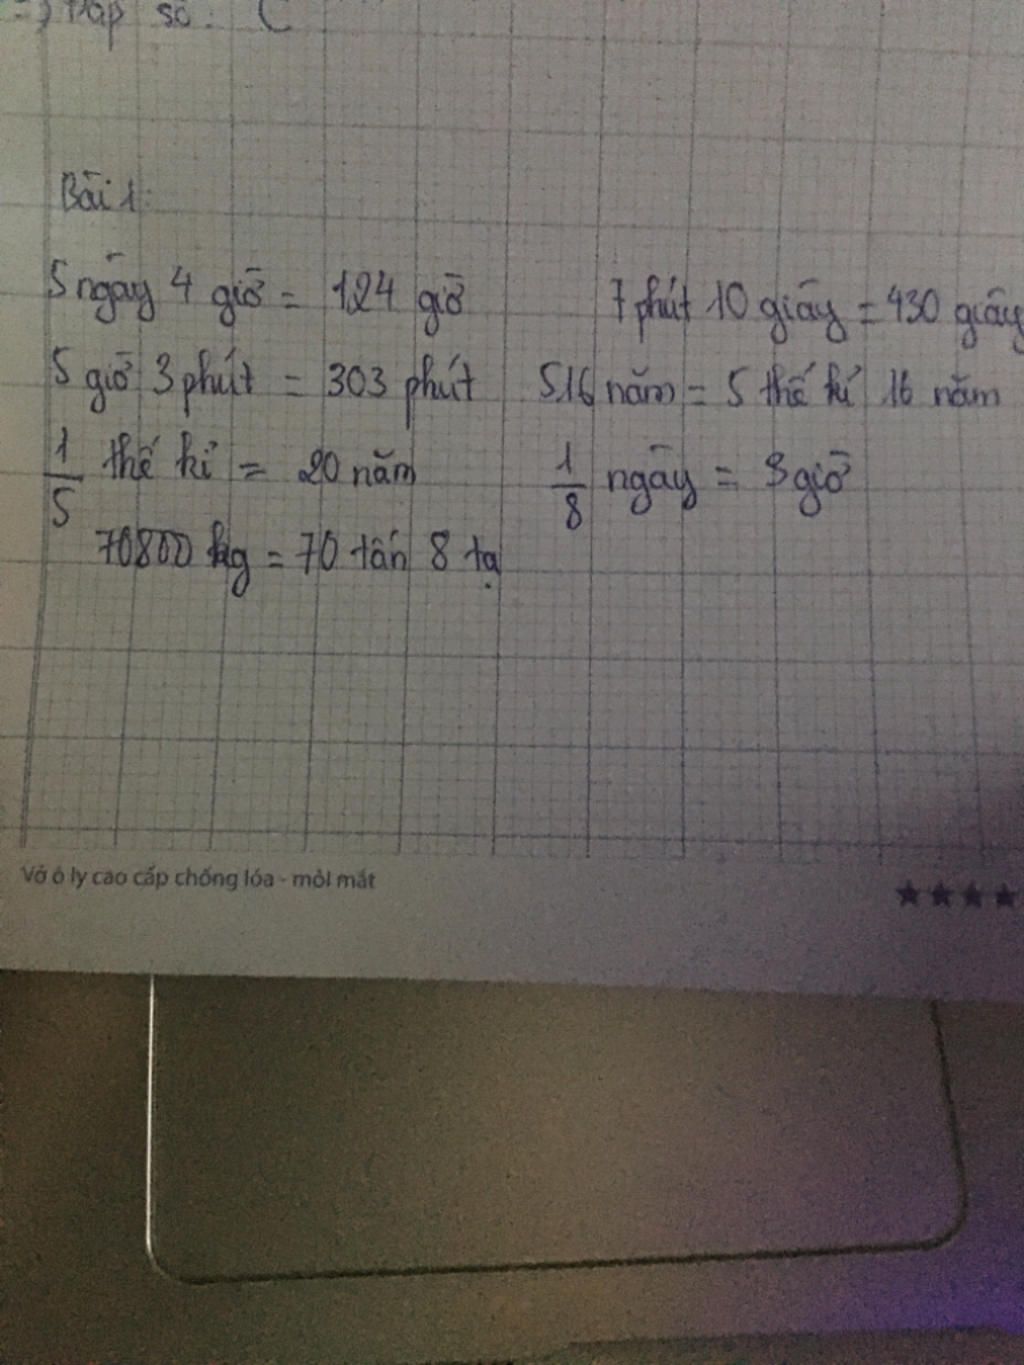 =) Đáp số: C
Bài 1:
5 ngày 4 giờ = 124 giờ 7 phút 10 giây = 430 giây
5 giờ 3 phút = 303 phút 516 năm = 5 thế kỉ 16 năm
1/5 thế kỉ = 20 năm 1/8 ngày = 3 giờ
70800 kg = 70 tấn 8 tạ
Vở ô ly cao cấp chống lóa - mỏi mắt